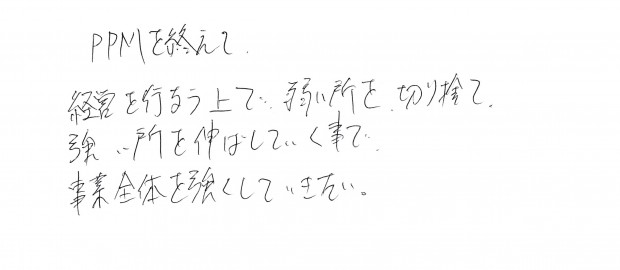 PPMを終えて
経営を行なう上で、弱い所を切り捨て、
強い所を伸ばしていく事で
事業全体を強くしていきたい。